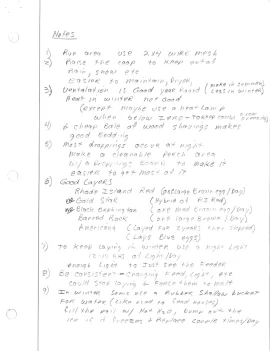 Notes
1) Run area use 2x4 wire mesh
2) Raise the coop to keep out of
rain, snow etc
Easier to maintain, Dryer,
3) Ventalation is Good year Round (
Heat in winter not Good
(except maybe use a heat lamp
when below zero -
4) A cheap Bale of wood shavings makes
good Bedding
5) Most droppings occur at night
Make a cleanable perch area
w/ a droppings board to make it
easier to get most of it
6) Good Layers
Rhode Island Red (One Large Brown egg/Day)
Gold Star (Hybrid of RI Red)
Black (One Med Brown egg/Day)
Barred Rock (One Large Brown/Day)
Americana (Layed for 3 weeks then stopped)
(Lays Blue eggs)
7) To keep laying in winter use a night light
of Light/Day)
enough light to Just see the feeder
8) Be consistent - changing Feed, Light, etc
could stop laying & force them to molt
9) In winter Some use a Rubber Shallow bucket
For water (like kind to feed horses)
fill the pail w/ Hot H2O, Dump out the
ice if it freezes & Replace couple times/Day